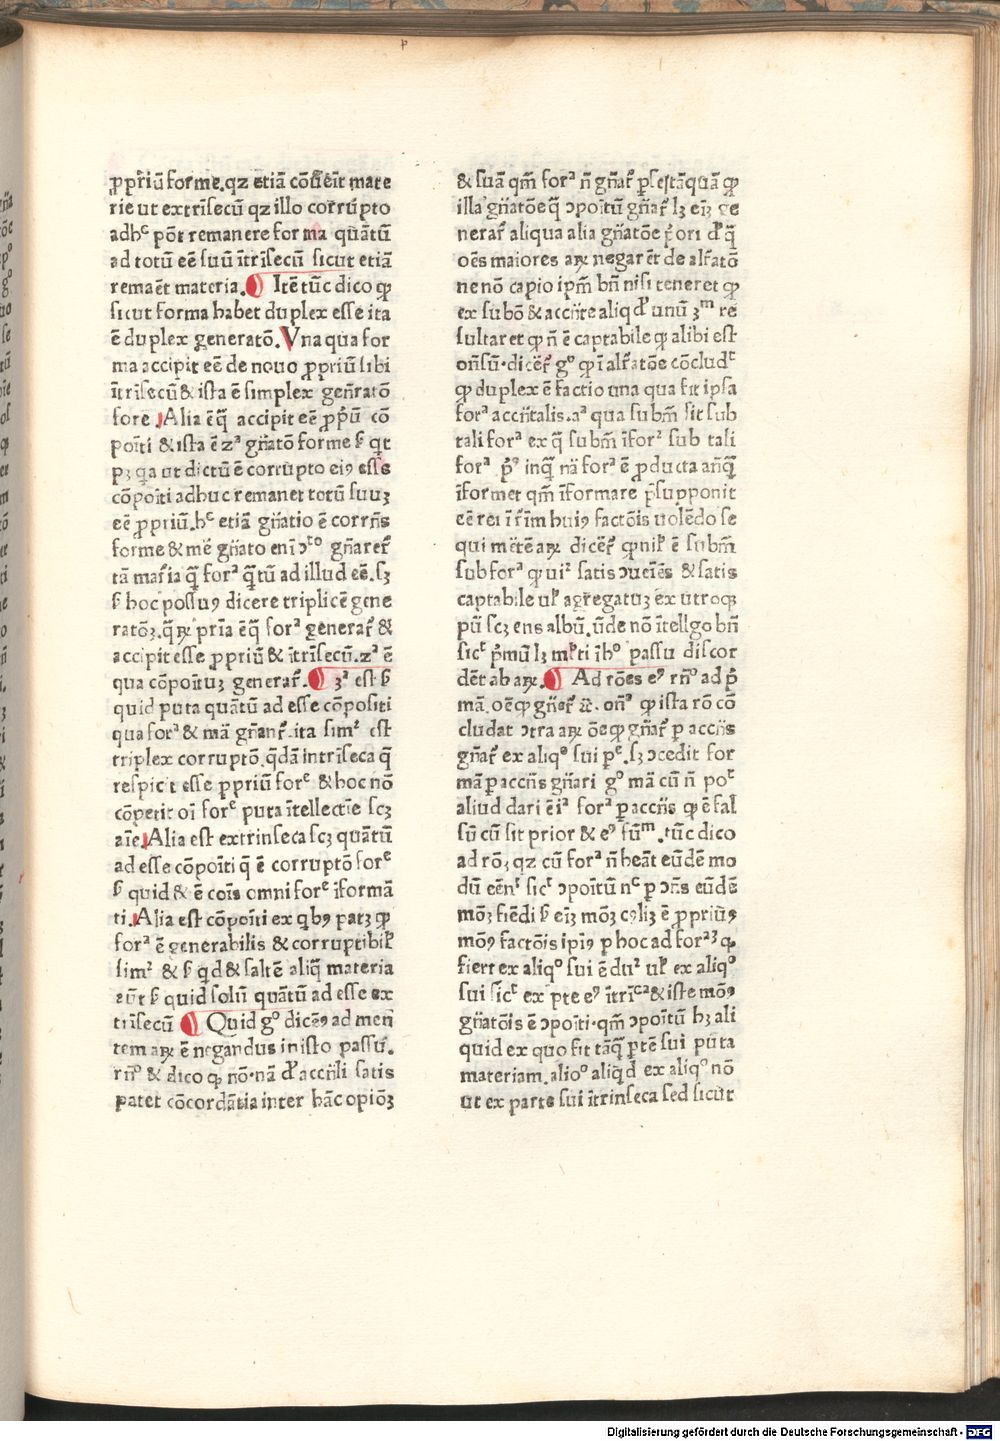 ꝓpriū forme. qz etiā cōuēit mate
rie ut extrīsecū qz illo corrupto
adhᶜ pōt remanere forma quātū
ad totū eē suū ītrīsecū sicut etiā
remaēt materia. Itē tūc dico ꝙ
sicut forma habet duplex esse ita
ē duplex generatō. Vna qua for
ma accipit eē de nouo ꝓpriū sibi
ītrīsecū & ista ē simplex gen̄ratō
fore Alia ē q̄ accipit eē ꝓpū cō
poīti & ista ē zᵃ gn̄atō forme ẜ qt
pꝫ qa ut dictū ē corrupto eiꝰ esse
cōpoīti adhuc remanet totū suuꝫ
eē ꝓpriū. hᶜ etiā gn̄atio ē corrn̄s
forme & mē gn̄ato enī ↄᵗᵒ gn̄aret᷑
tā mat᷑ia q̄ forᵃ q̄tū ad illud eē. sꝫ
ẜ hoc possuꝰ dicere triplicē gene
ratōꝫ. q̄ꝝ pria ē q̄ forᵃ generat᷑ &
accipit esse ꝓpriū & ītrīsecū. zᵃ ē
qua cōpoītuꝫ generat᷑. ꝫᵃ est ẜ
quid puta quātū ad esse cōpositi
qua forᵃ & mā gn̄ant᷑. ita simᶻ est
triplex corruptō. q̄dā intrīseca q̄
respicit esse ꝓpriū forᵉ & hoc nō
cōpetit oī forᵉ puta ītellectīe scꝫ
aīe. Alia est extrinseca scꝫ quātū
ad esse cōpoīti q̄ ē corruptō forᵉ
ẜ quid & ē coīs omni forᵉ īformā
ti. Alia est cōpoīti ex qbꝰ patꝫ ꝙ
forᵃ ē generabilis & corruptibiƚ
simᶻ & ẜ qd & saltē aliq̄ materia
ẜ quid solū quātū ad esse ex
trīsecū Quid gᵒ dicēꝰ ad men
tem aꝝ ē negandus in isto passu.
rn̄ᵒ & dico ꝙ nō. nā đ accn̄li satis
patet cōcordātia inter hāc opiōꝫ
& suā qm̄ forᵃ n̄ gn̄at᷑ ꝑ se tāquā ꝙ
illa gn̄atōe q̄ ↄpoītū gn̄at᷑ lꝫ eīꝫ ge
nerat᷑ aliqua alia gn̄atōe p̄ori đ q̄
oēs maiores aꝝ negarēt de alt᷑atō
ne nō capio ipm̄ bn̄ nisi teneret ꝙ
ex subō & accn̄te aliqđ unū ꝫᵐ re
sultaret ꝙ n̄ ē captabile ꝙ alibi est
on̄sū. dicēt᷑ gᵒ ꝙ ī alt᷑atōe cōcludᶜ
ꝙ duplex ē factio una qua fit ipsa
forᵃ accn̄talis. aᵃ qua subm̄ fit sub
tali forᵃ ex q̄ subm̄ īforᶻ sub tali
forᵃ pᵒ inq̄ nā forᵃ ē ꝓducta an̄q̄
īformet qm̄ īformare p̄supponit
eē rei īt᷑īm huiꝰ factōis uolēdo se
qui mētē aꝝ dicēt᷑ ꝙ niƚ ē subm̄
sub forᵃ ꝙ uiᶻ satis ↄueīēs & satis
captabile uƚ agregatuꝫ ex utroqꝫ
pū scꝫ ens albū. ūde nō ītellgo bn̄
sicᶜ p̄mū lꝫ mƚti ī hᵒ passu discor
dēt ab aꝝ. Ad rōes eꝰ rn̄ᵒ ad p̄
mā. oē ꝙ gn̄at᷑ &c. on̄ᵒ ꝙ ista rō cō
cludat ↄtra aꝝ ōe ꝙ gn̄at᷑ ꝑ accn̄s
gn̄at᷑ ex aliqᵒ sui pᵉ. sꝫ ↄcedit for
mā ꝑ accn̄s gn̄ari gᵒ mā cū n̄ poᶜ
aliud dari ē iᵃ forᵃ ꝑ accn̄s ꝙ ē fal
sū cū sit prior & eꝰ fūᵐ. tūc dico
ad rōꝫ qz cū forᵃ n̄ heāt eūdē mo
dū eēnᵈ sicᶜ ↄpoītū nᶜ ꝑ ↄn̄s eūdē
mōꝫ fiēdi ẜ eīꝫ mōꝫ cꝰliꝫ ē ꝓpriūꝰ
mōꝰ factōis ipiꝰ ꝑ hoc ad forᵃꝫ ꝙ
fieret ex aliqᵒ sui ē duᶻ uƚ ex aliqᵒ
sui sicᶜ ex ꝑte eꝰ ītriᶜᵃ & iste mōꝰ
gn̄atōis ē ↄpoīti. qm̄ ↄpoītū hꝫ ali
quid ex quo fit tāq̄ ꝑtē sui puta
materiam. alioᵒ aliqd ex aliqᵒ nō
ut ex parte sui ītrinseca sed sicut
Digitalisierung gefördert durch die Deutsche Forschungsgemeinschaft - DFG